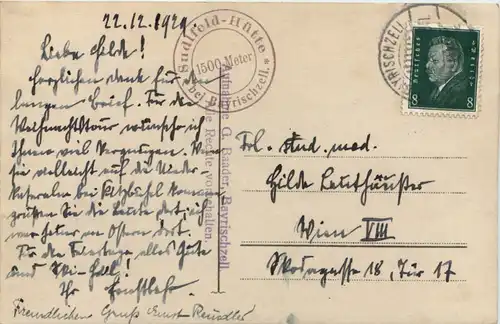 22.12.1929.
Liebe Hilde!
Herzlichen Dank für den
langen Brief. Für die
Weihnachtstour wünsche ich
Ihnen viel Vergnügen. Wenn
sie vielleicht auf die
bei Kitzbühl kommen
grüßen Sie die Leute dort, ich
war heuer an Ostern dort.
Für die Feiertage alles Gute
und Ski-Heil!
Ihr
Freundlichen Gruß Ernst
Sudlfeld-Hütte
1500 Meter
bei Bayrischzell.
G. Baader, Bayrischzell.
Rechte vorbehalten
BAYRISCHZELL
Deutsches Reich
8 8
Frl. stud. med.
Hilde
Wien VIII
18, Tür 17